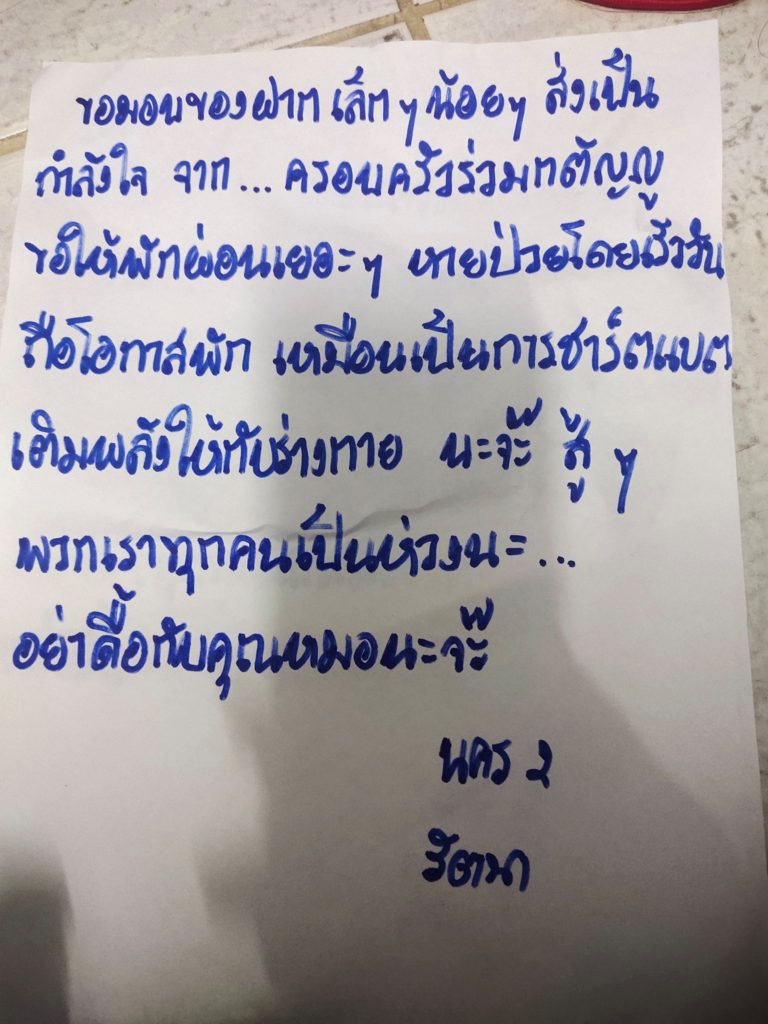 ขอมอบของฝาก เล็ก ๆ น้อย ๆ ส่งเป็น
กำลังใจ จาก... ครอบครัวร่วมกตัญญู
ขอให้พักผ่อนเยอะ ๆ หายป่วยโดยเร็ววัน
ถือโอกาสพัก เหมือนเป็นการชาร์ตแบต
เติมพลังให้กับร่างกาย นะจ๊ะ สู้ ๆ
พวกเราทุกคนเป็นห่วงนะ...
อย่าดื้อกับคุณหมอนะจ๊ะ
นคร 2
รัตนา